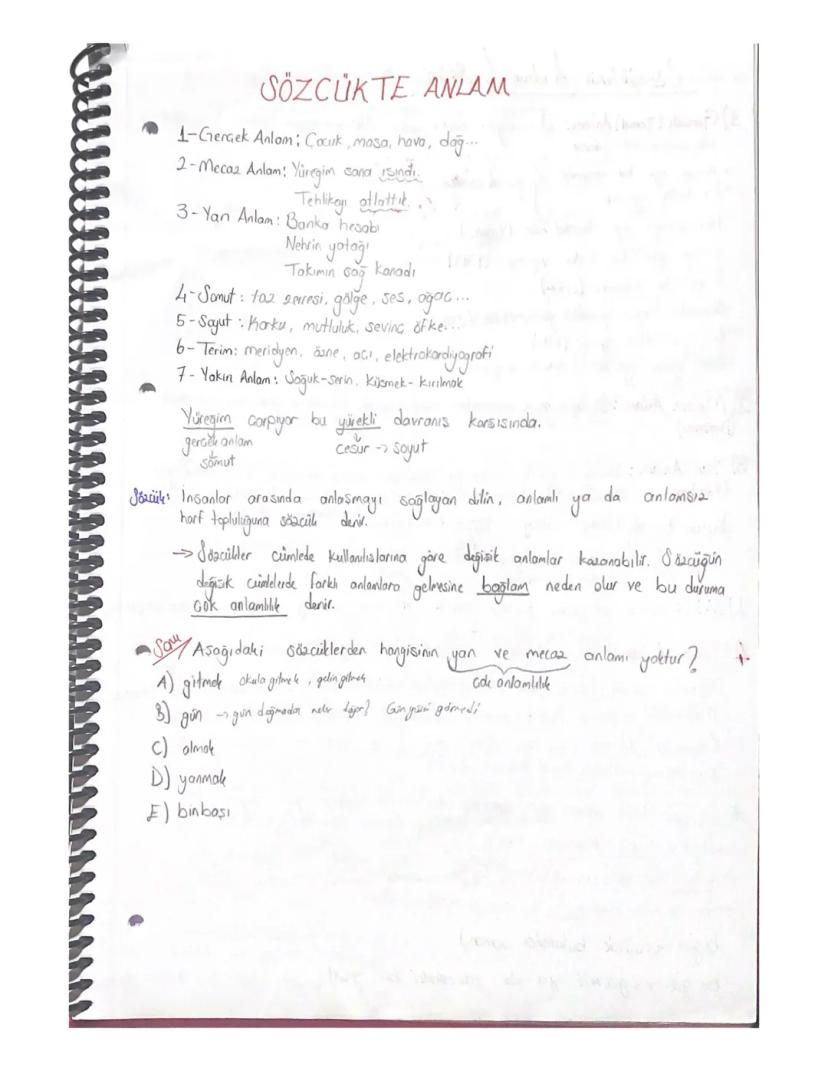 SÖZCÜKTE ANLAM
1-Gerçek Anlam: Çocuk, masa, hava, dağ...
2-Mecaz Anlam: Yüreğim sana ısındı.
Tehlikeyi atlattık.
3-Yan Anlam: Banka hesabı
Nehrin yatağı
Takımın sağ kanadı
4-Somut: toz zerresi, gölge, ses, ağaç...
5-Soyut: Korku, mutluluk, sevinç, öfke...
6-Terim: meridyen, özne, açı, elektrokardiyografi
7-Yakın Anlam: Soğuk-serin, Küsmek-kırılmak
Yüreğim çarpıyor bu yürekli davranış karşısında.
gerçek anlam cesur -> soyut
somut
Sözcük: İnsanlar arasında anlaşmayı sağlayan dilin, anlamlı ya da anlamsız
harf topluluğuna sözcük denir.
→ Sözcükler cümlede kullanılışlarına göre değişik anlamlar kazanabilir. Sözcüğün
değişik cümlelerde farklı anlamlara gelmesine bağlam neden olur ve bu duruma
çok anlamlılık denir.
Soru/ Aşağıdaki sözcüklerden hangisinin yan ve mecaz anlamı yoktur?
çok anlamlılık
A) gitmek okula gitmek, gelin gitmek
B) gün → gün doğmadan neler doğar? Gün yüzü görmedi
C) olmak
D) yanmak
E) binbaşı